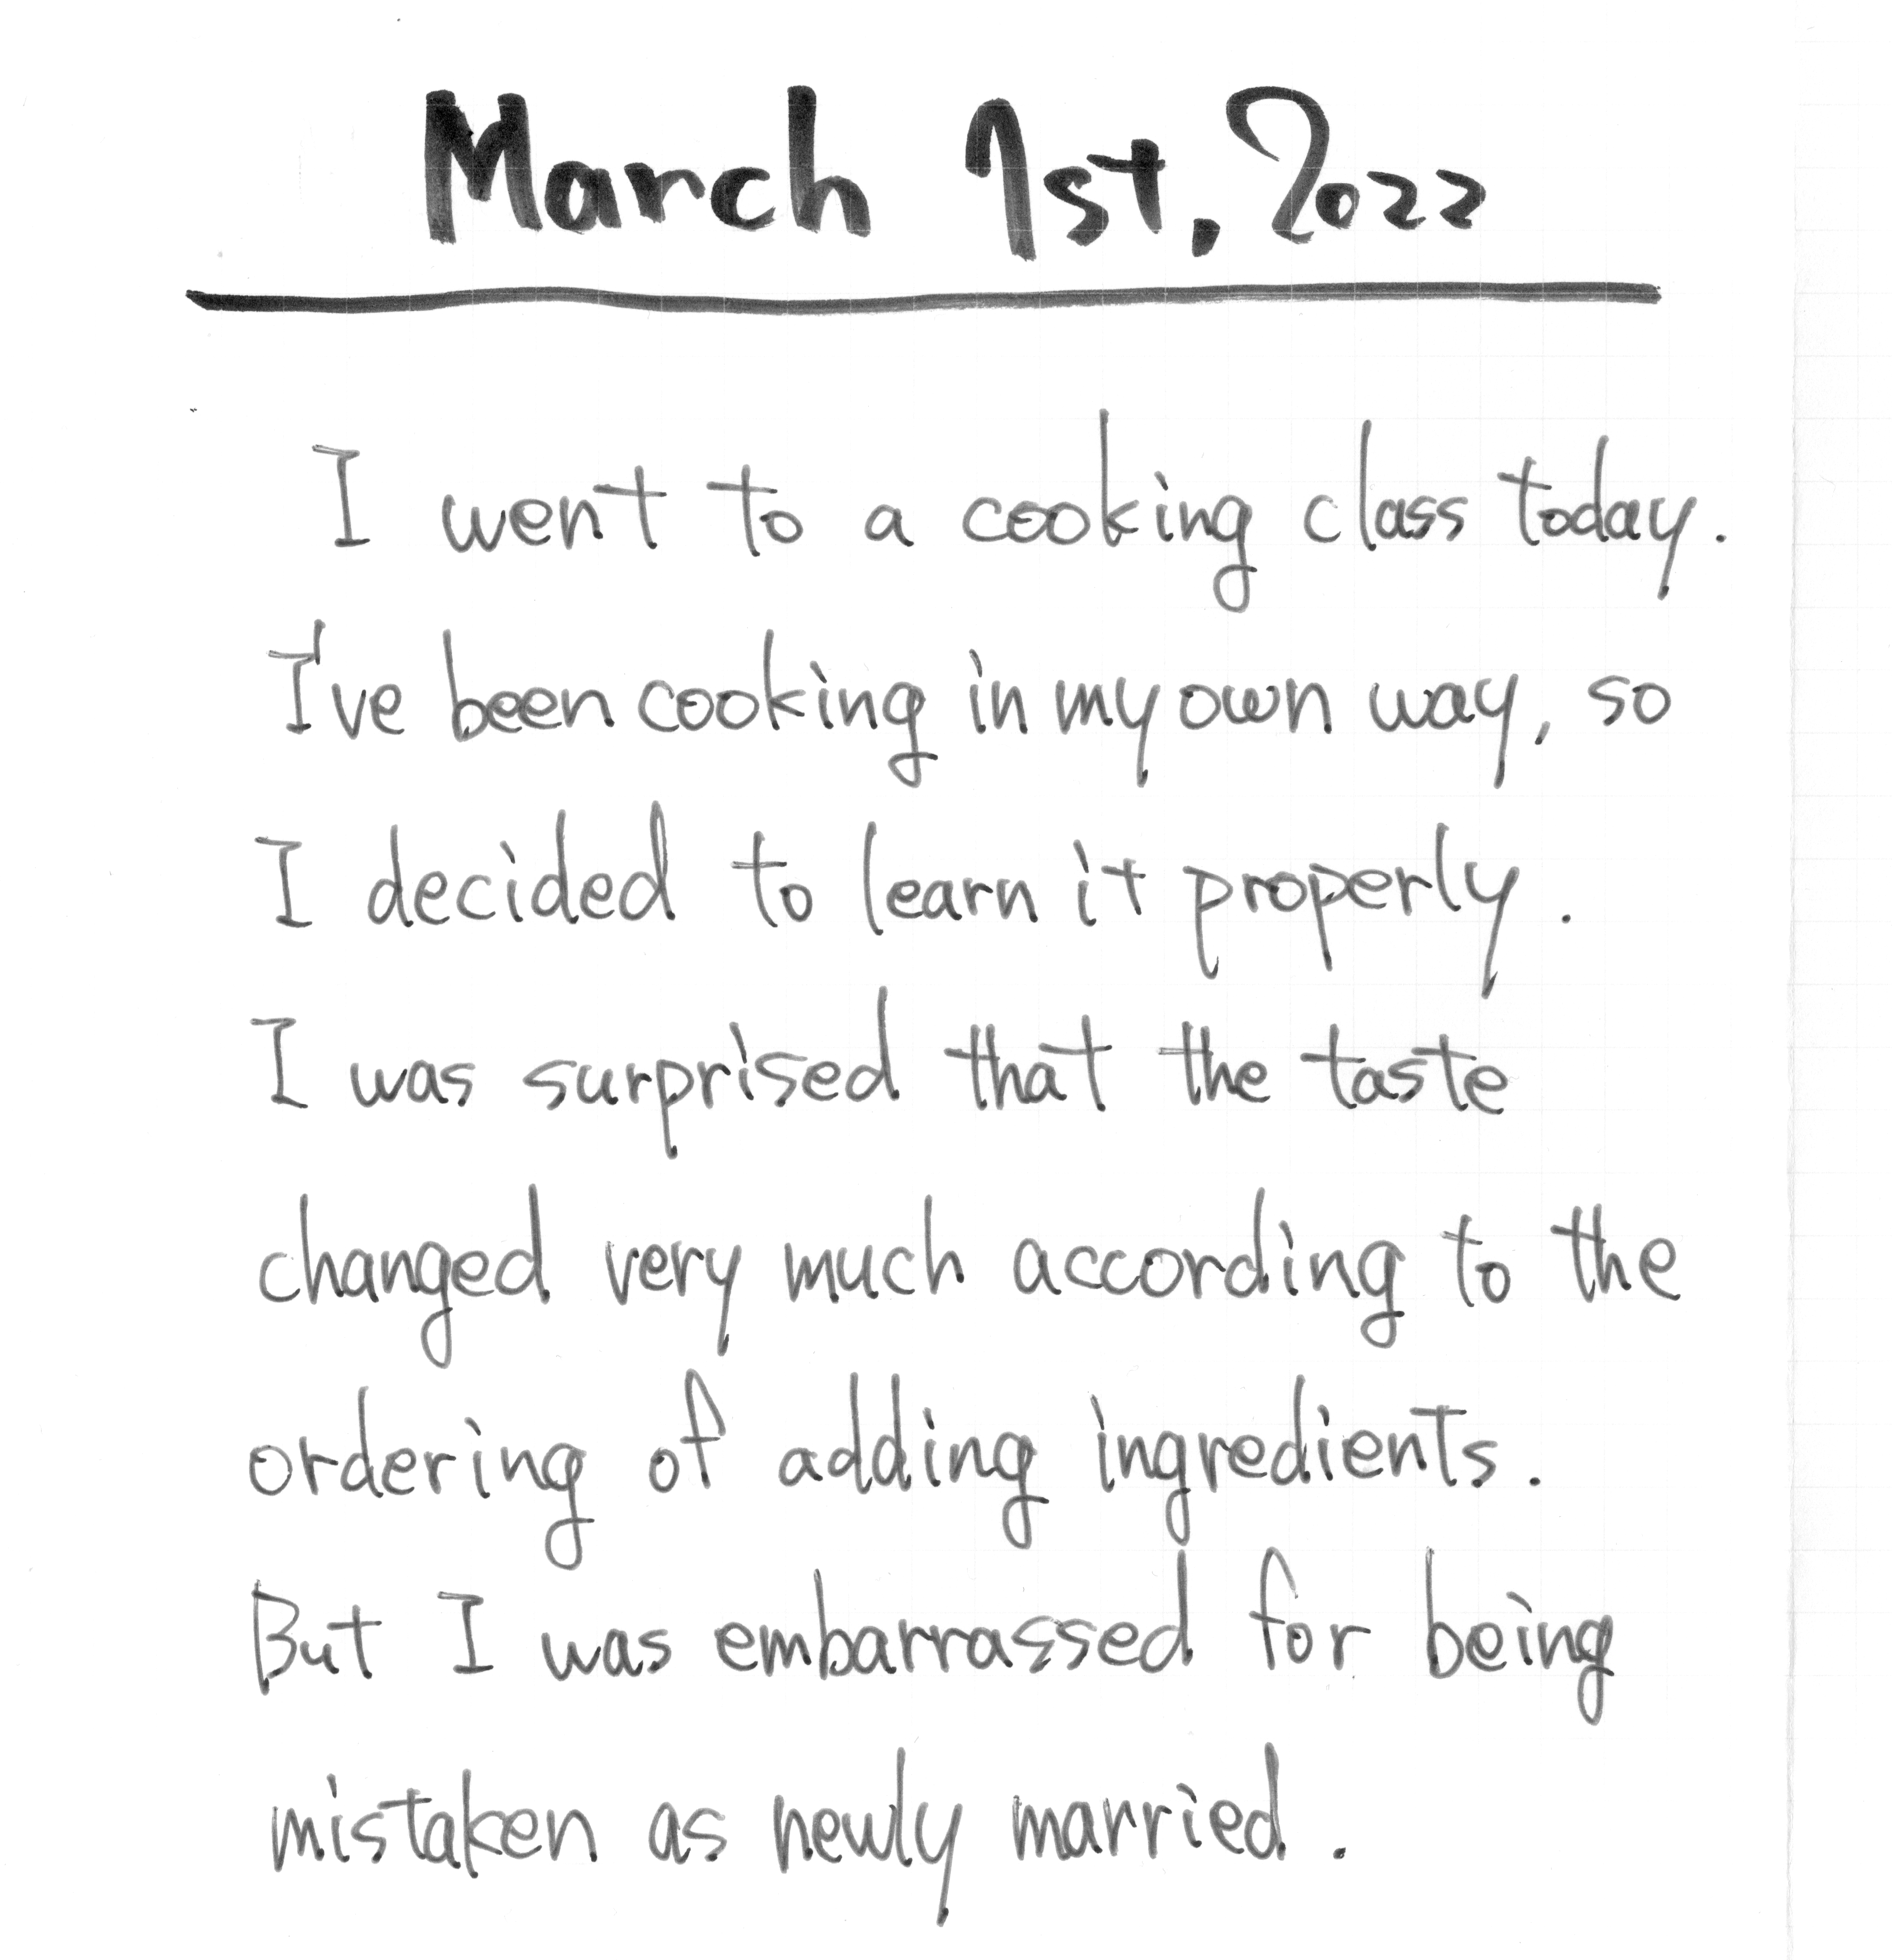 March 1st, 2022
I went to a cooking class today.
I've been cooking in my own way, so
I decided to learn it properly.
I was surprised that the taste
changed very much according to the
ordering of adding ingredients.
But I was embarrassed for being
mistaken as newly married.